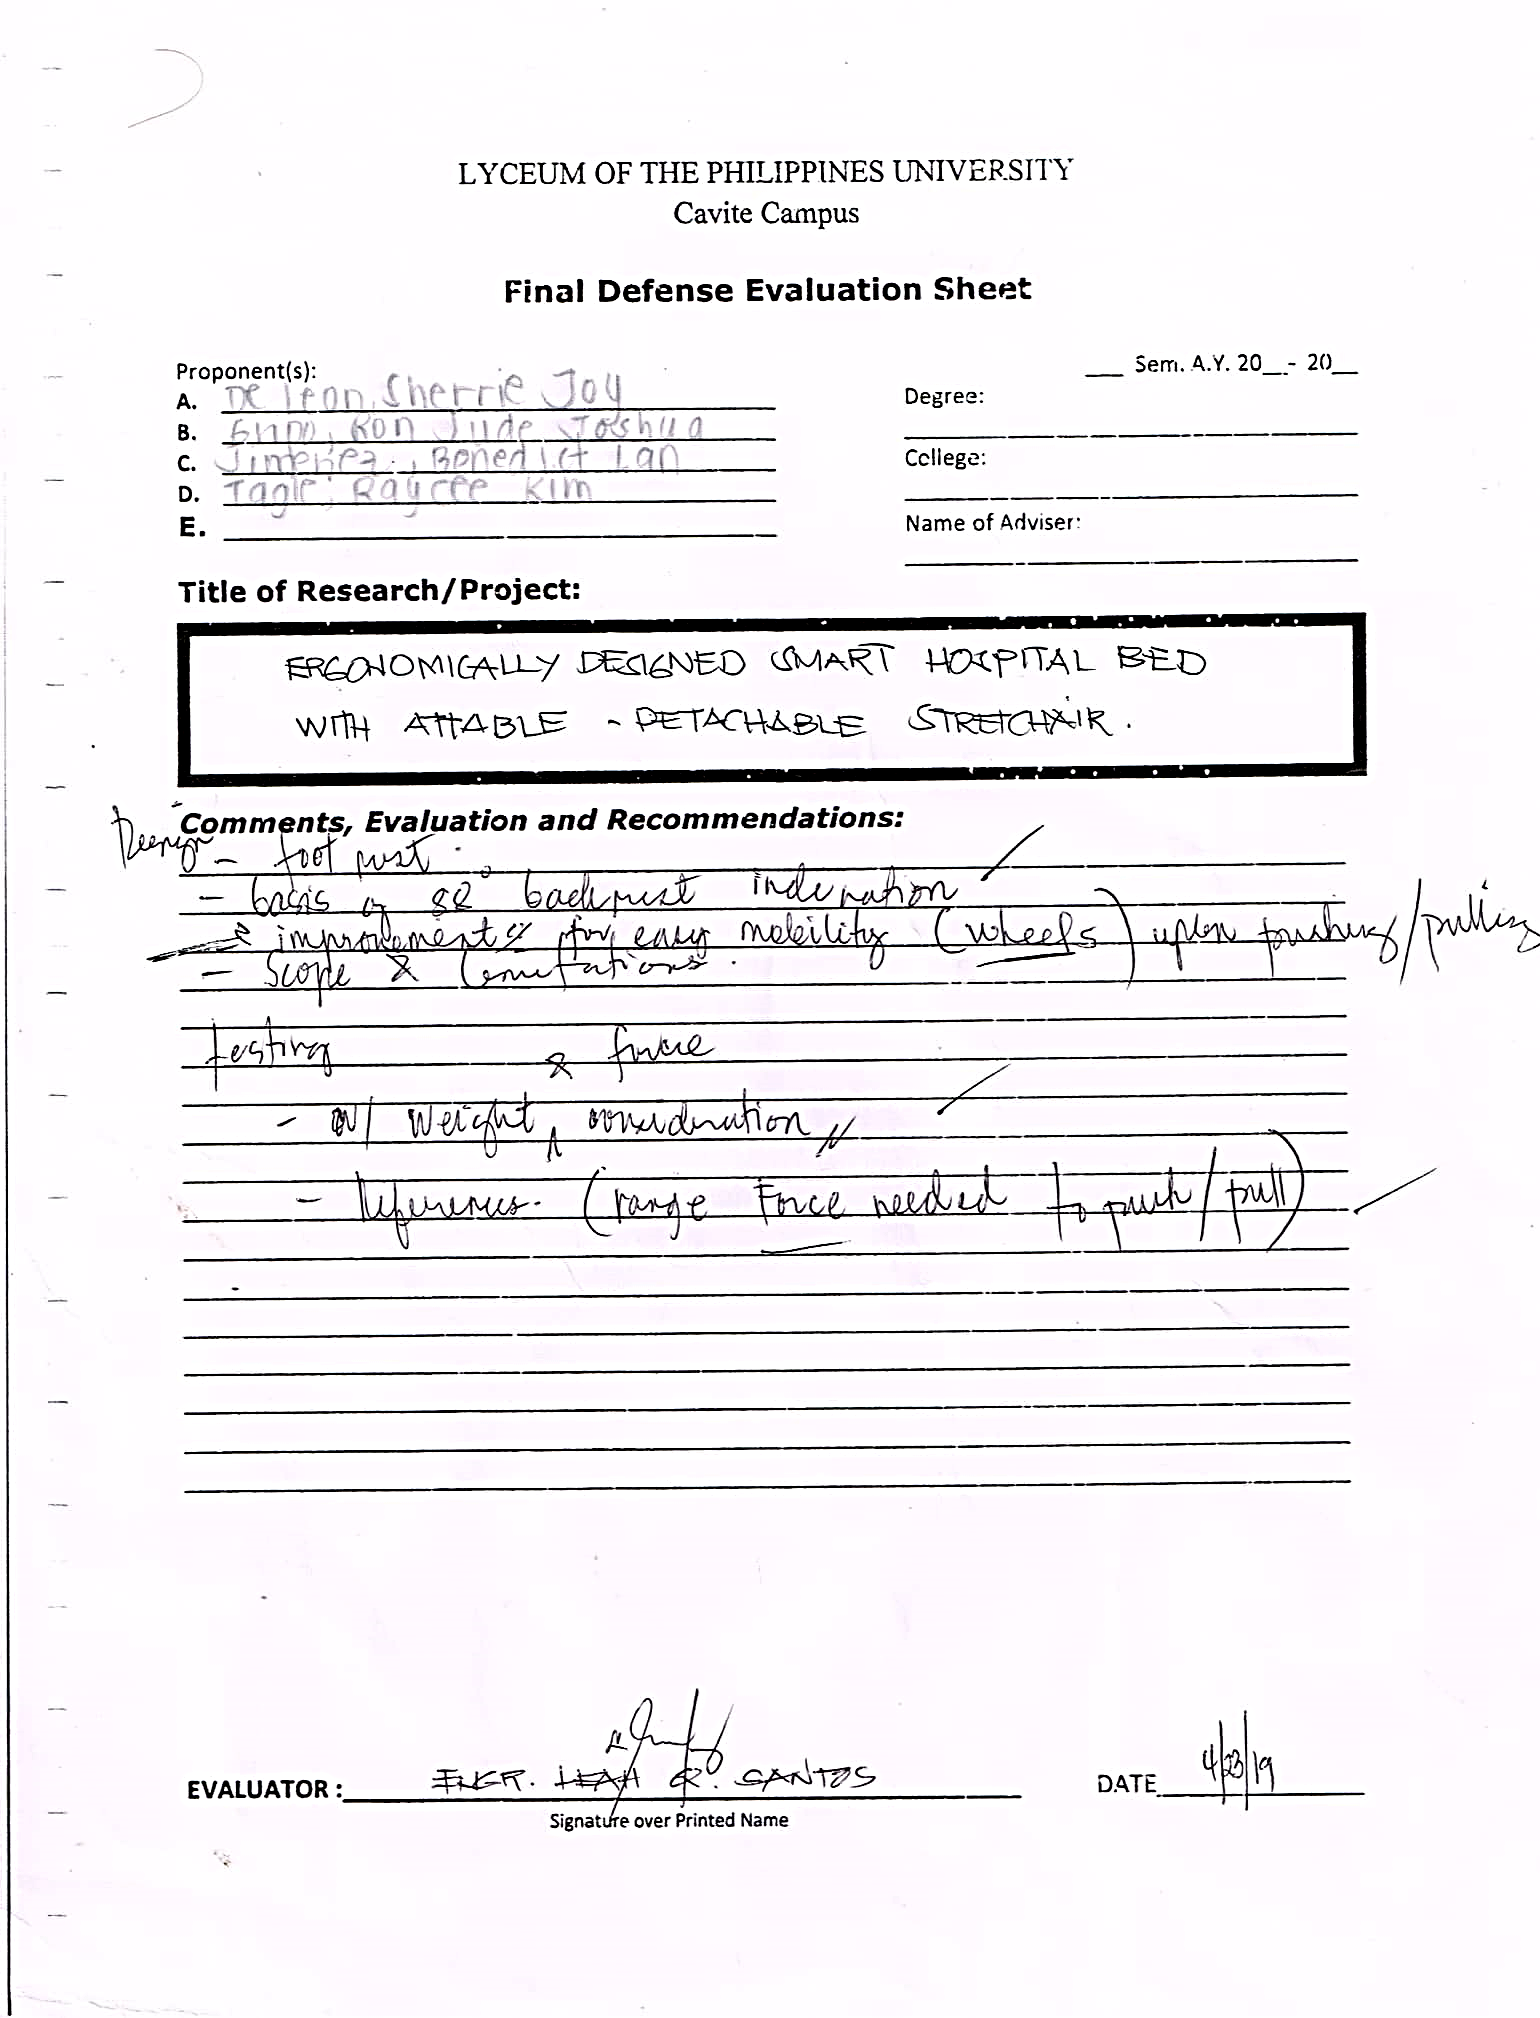 LYCEUM OF THE PHILIPPINES UNIVERSITY
Cavite Campus
Final Defense Evaluation Sheet
___ Sem. A.Y. 20__ - 20__
Proponent(s):
A. De leon, Sherrie Joy
B. Ron Jude Joshua
C. Jimenez, Benedict Ian
D. Tagle, Raycee Kim
E.
Degree:
College:
Name of Adviser:
Title of Research/Project:
ERGONOMICALLY DESIGNED SMART HOSPITAL BED
WITH ATTABLE - DETACHABLE STRETCHAIR.
Comments, Evaluation and Recommendations:
Design - foot rest
- basis of 82° backrest
- improvements for easy mobility (wheels) upon pushing/pulling
- Scope & Limitations.
testing
- w/ weight & force consideration
- References. (range Force needed to push/pull)
EVALUATOR : ENGR. LEAH R. SANTOS
Signature over Printed Name
DATE 4/23/19